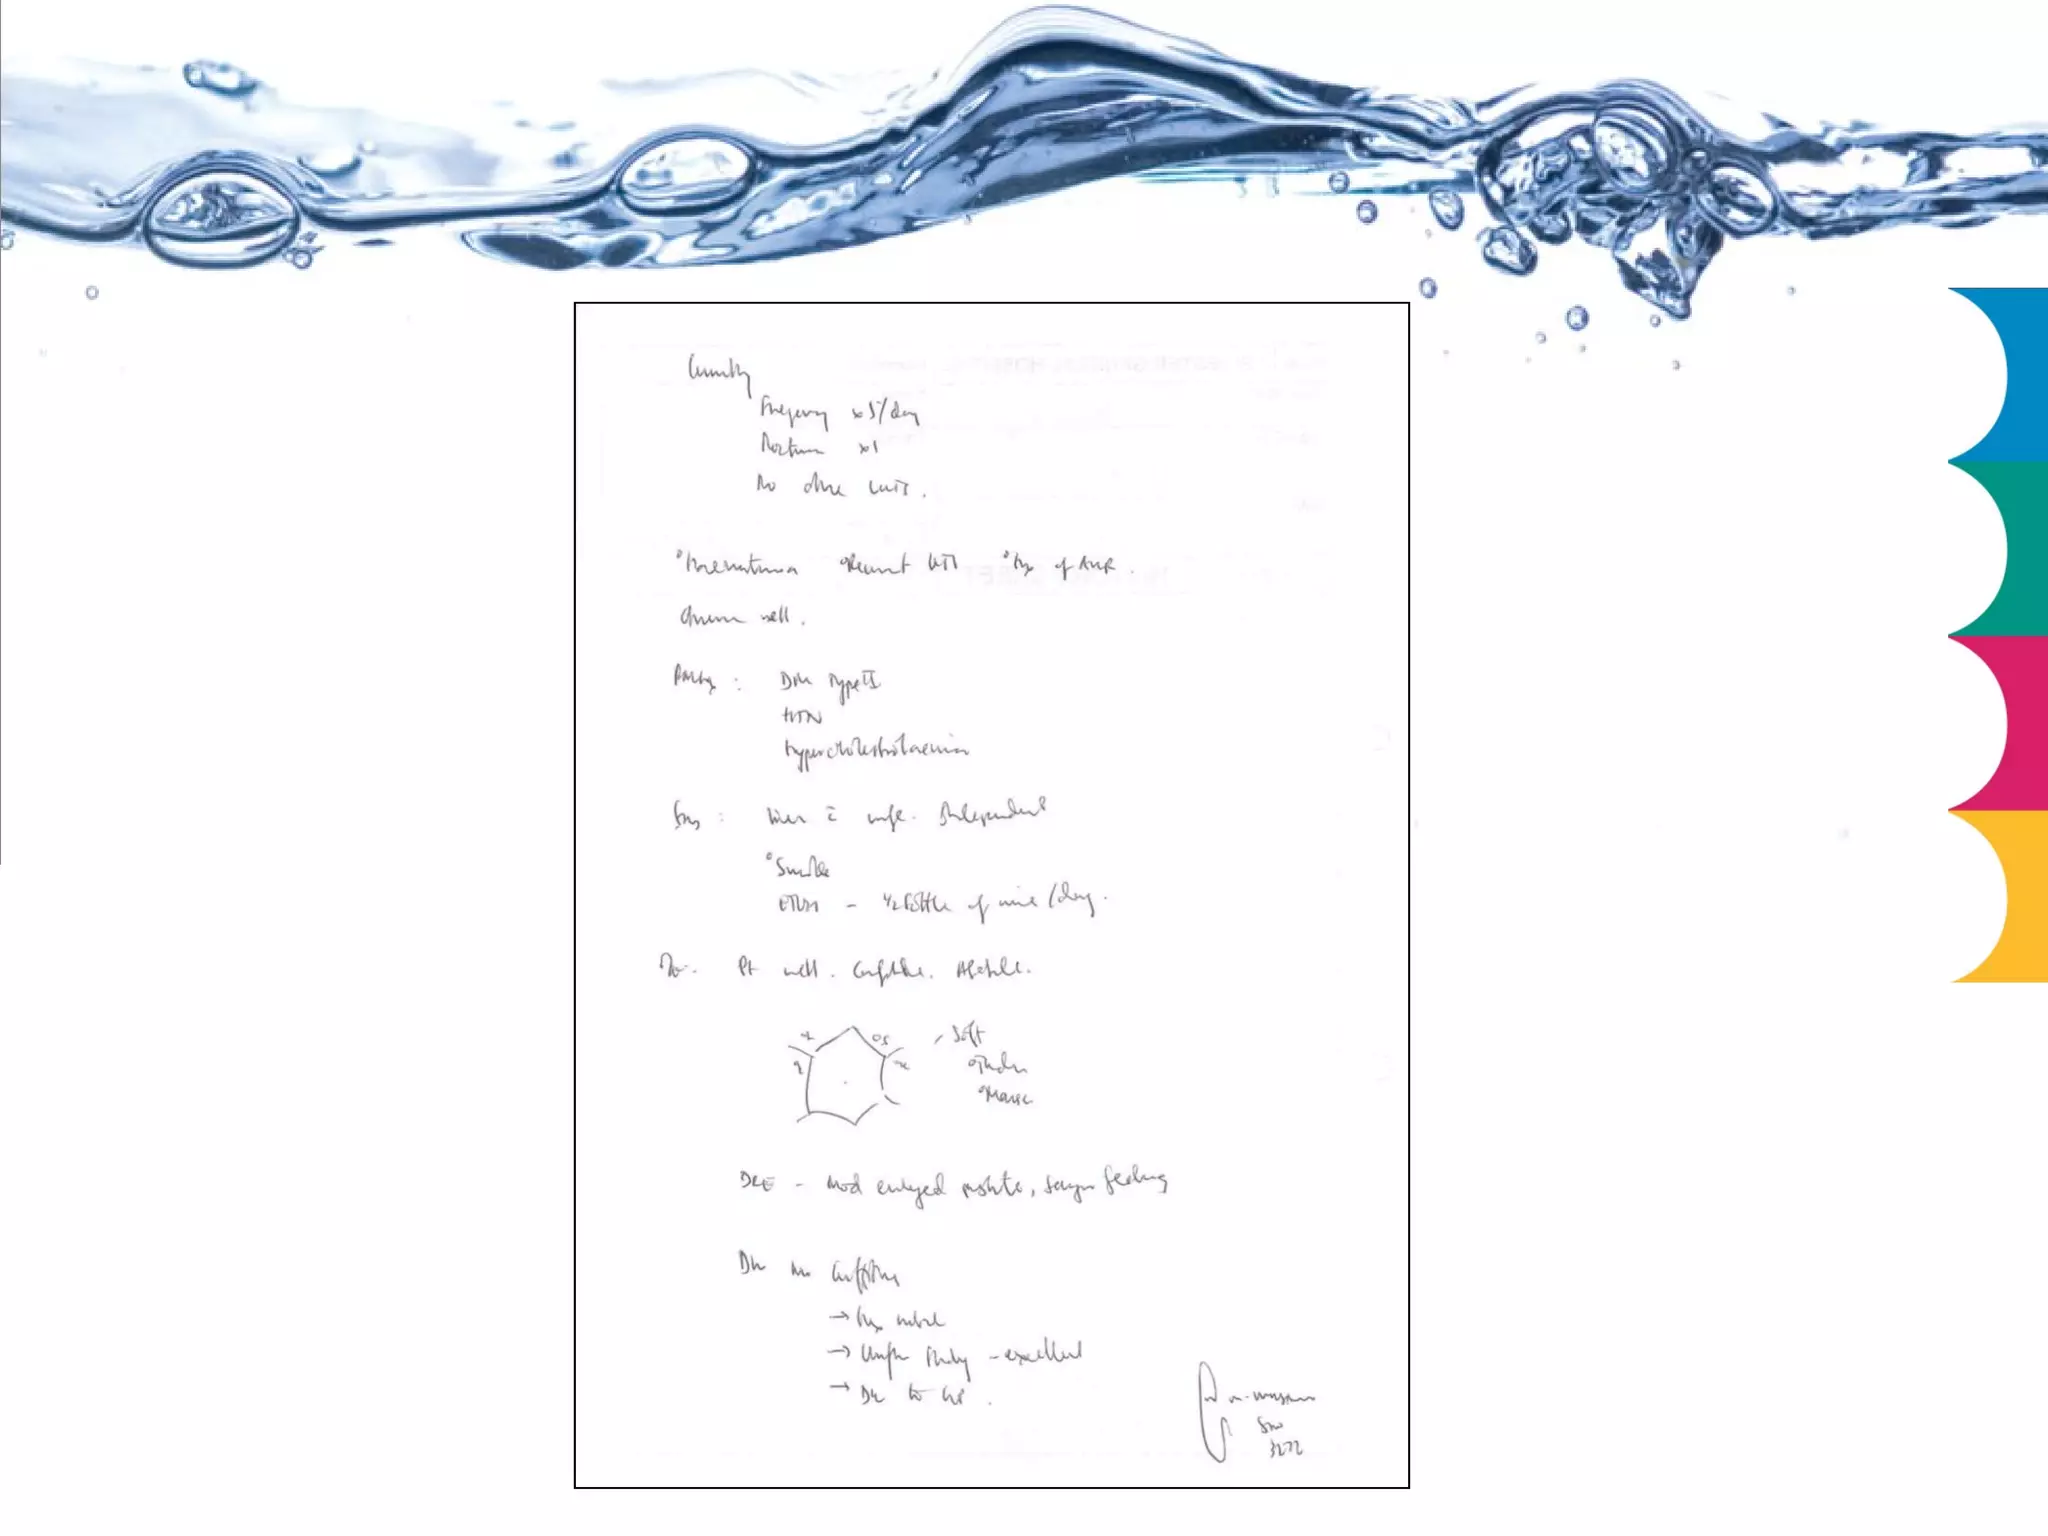 Currently
Frequency x5/day
Nocturia x1
No other LUTS.
°Haematuria °Recurrent UTI °Hx of AUR.
Otherwise well.
PMHx : DM Type II
HTN
Hypercholesterolaemia
SHx : Lives c̄ wife. Independent
°Smoke
ETOH - ½ bottle of wine/day.
Pt well. Comfortable. Afebrile.
Soft
°Tender
°Masses
DRE - Mod enlarged prostate, benign feeling
→ Hx noted
→ - excellent
→ to GP.
3272